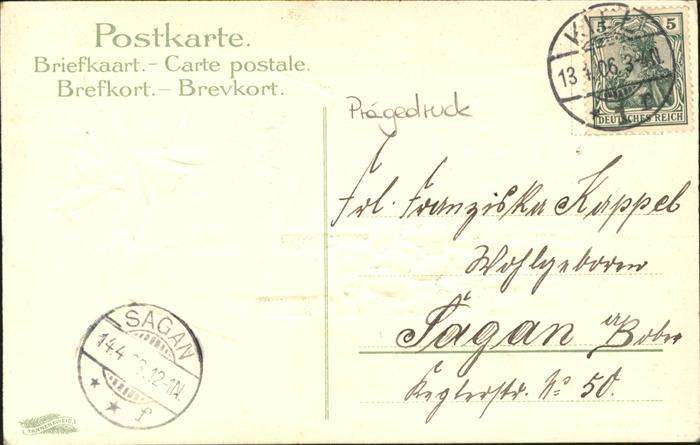 Postkarte.
Briefkaart. - Carte postale.
Brefkort. - Brevkort.
Prägedruck
5 5
DEUTSCHES REICH
13 06. 3-4N.
Frl. Franziska Kappel
Wohlgeboren
Sagan a/Bober
Keplerstr. No 50.
SAGAN
14.4. 12-1N.
f